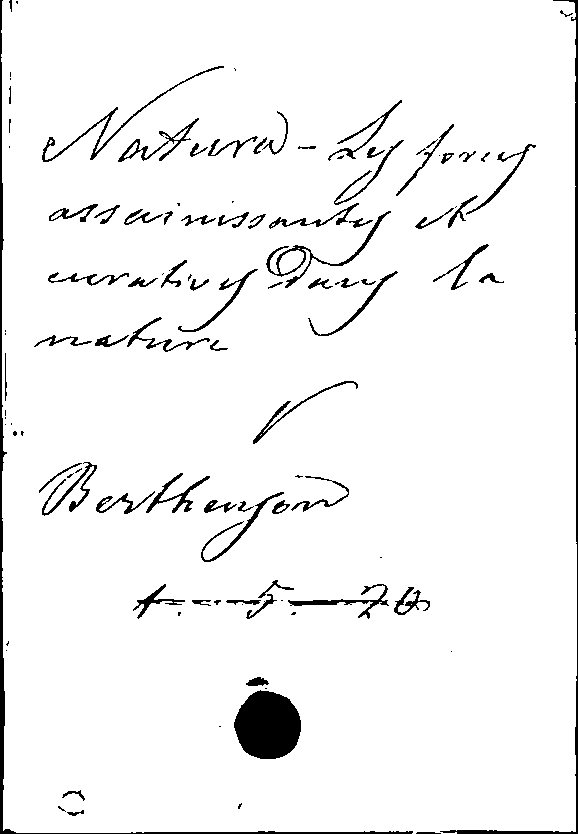 Natura - Les forces
assainissantes et
curatives dans la
nature
V
Berthenson
1. 5. 20